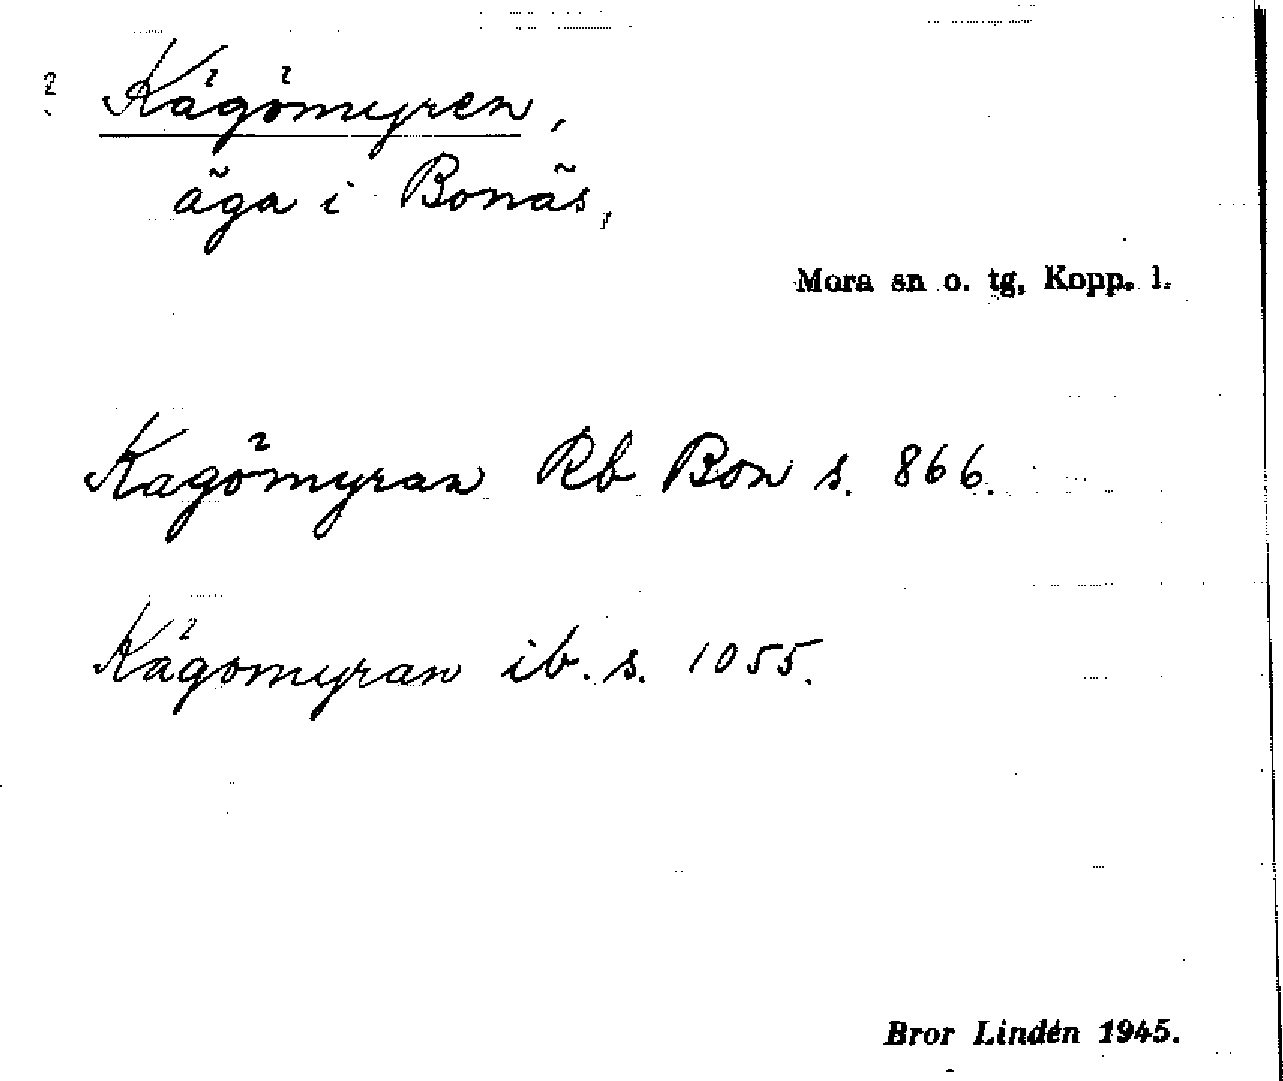 ? Kågömyren,
äga i Bonäs,
Mora sn o. tg, Kopp. l.
Kagömyran Rb Bon s. 866.
Kågomyran ib. s. 1055.
Bror Lindén 1945.